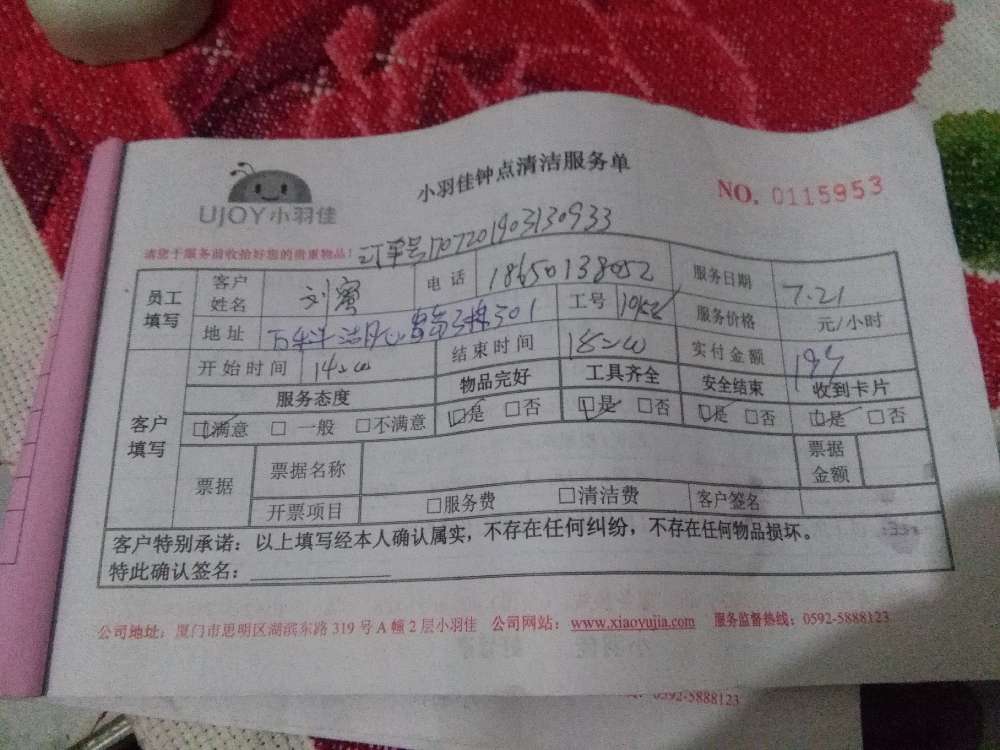 小羽佳钟点清洁服务单
NO. 0115953
UJOY小羽佳
请您于服务前收拾好您的贵重物品！ 订单号170720190313​0933
员工填写 客户姓名 刘蜜 电话 18650138052 服务日期 7.21
地址 3栋301 工号 服务价格 元/小时
客户填写 开始时间 14:00 结束时间 18:00 实付金额
服务态度 物品完好 工具齐全 安全结束 收到卡片
☑满意 □ 一般 □不满意 ☑是 □否 ☑是 □否 ☑是 □否 ☑是 □否
票据 票据名称 票据金额
开票项目 □服务费 □清洁费 客户签名
客户特别承诺：以上填写经本人确认属实，不存在任何纠纷，不存在任何物品损坏。
特此确认签名：
公司地址：厦门市思明区湖滨东路 319 号 A 幢 2 层小羽佳 公司网站：www.xiaoyujia.com 服务监督热线：0592-5888123
0592-5888123